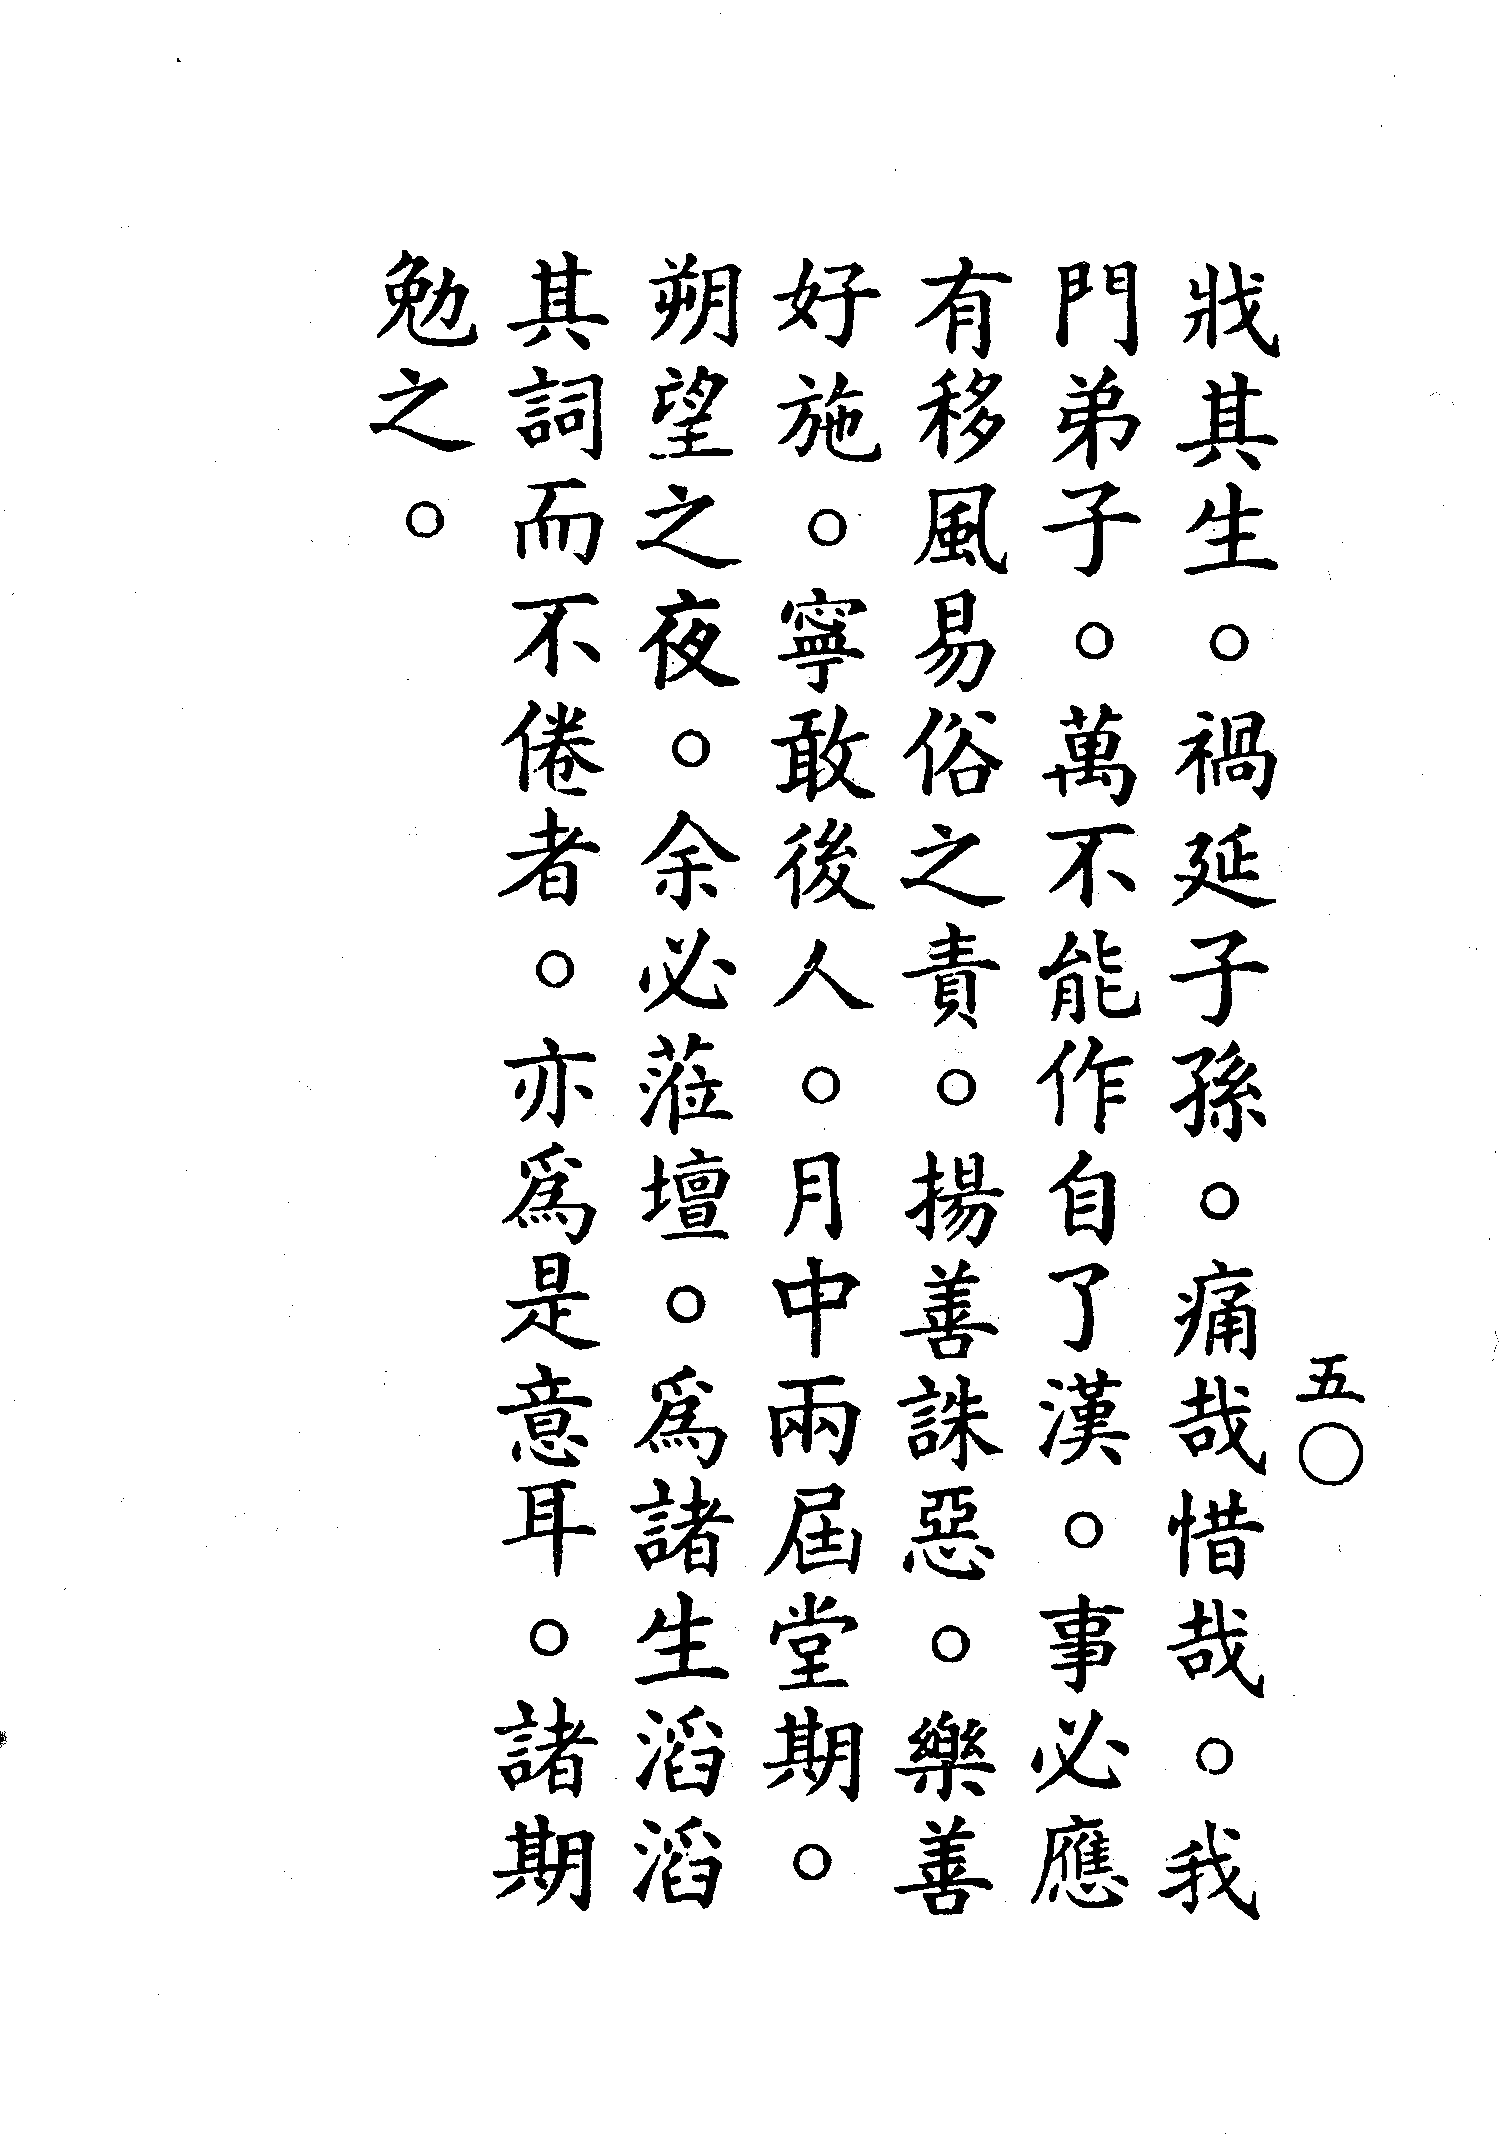 五〇
戕其生。禍延子孫。痛哉惜哉。我
門弟子。萬不能作自了漢。事必應
有移風易俗之責。揚善誅惡。樂善
好施。寧敢後人。月中兩屆堂期。
朔望之夜。余必蒞壇。爲諸生滔滔
其詞而不倦者。亦爲是意耳。諸期
勉之。